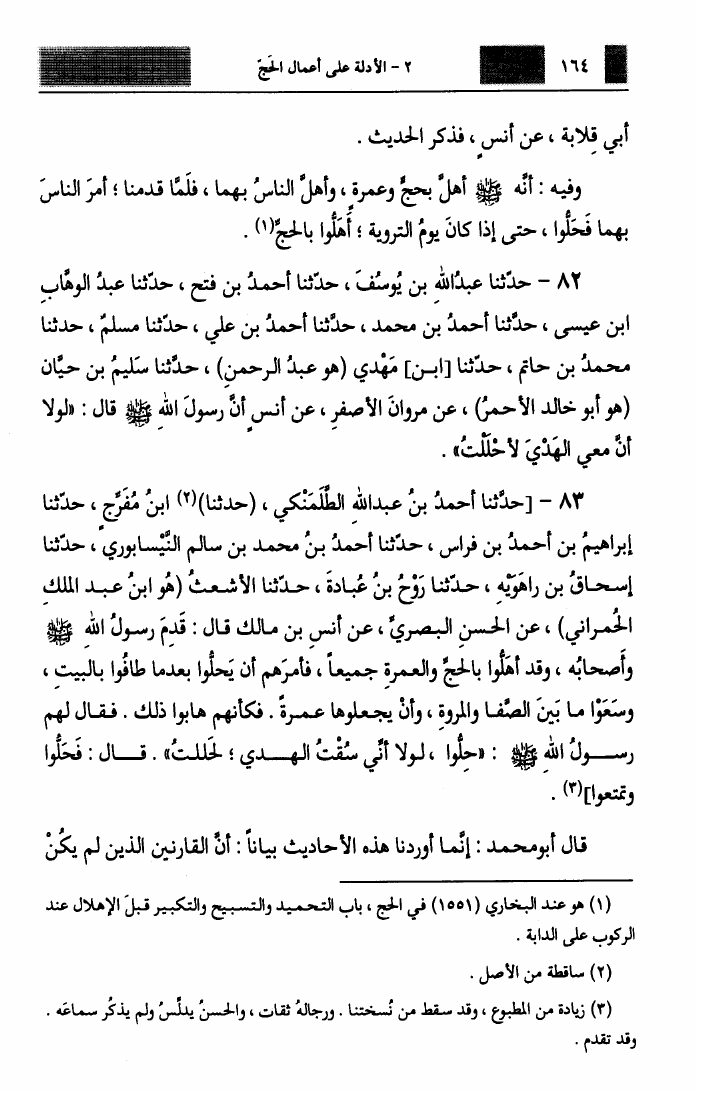 ١٦٤ ٢ - الأدلة على أعمال الحَجّ
أبي قِلابة ، عن أنسٍ ، فذكر الحديث .
وفيه : أنَّه ﷺ أهلَّ بحجٍّ وعمرةٍ ، وأهلَّ الناسُ بهما ، فلَمَّا قدمنا ؛ أمرَ الناسَ
بهما فَحَلُّوا ، حتى إذا كانَ يومُ التروية ؛ أَهَلُّوا بالحجِّ(١) .
٨٢ - حدّثنا عبدُاللهِ بن يُوسُفَ ، حدّثنا أحمدُ بن فتح ، حدّثنا عبدُ الوهَّابِ
ابن عيسى ، حدَّثنا أحمدُ بن محمد ، حدَّثنا أحمدُ بن علي ، حدّثنا مسلمٌ ، حدثنا
محمدُ بن حاتم ، حدّثنا [ابن] مَهْدي (هو عبدُ الرحمنِ) ، حدَّثنا سَليمُ بن حيَّان
(هو أبو خالد الأحمرُ) ، عن مروانَ الأصفرِ ، عن أنسٍ أنَّ رسولَ اللهِ ﷺ قال : «لولا
أنَّ معي الهَدْيَ لأَحْلَلْتُ» .
٨٣ - [حدَّثنا أحمدُ بنُ عبداللهِ الطَّلَمَنْكي ، (حدثنا)(٢) ابنُ مُفَرِّجٍ ، حدّثنا
إبراهيمُ بن أحمدُ بن فراس ، حدّثنا أحمدُ بنُ محمد بن سالم النَّيْسابوري ، حدّثنا
إسحاقُ بن راهَوَيْهِ ، حدّثنا رَوْحُ بنُ عُبادةَ ، حدّثنا الأشعثُ (هُو ابنُ عبد الملكِ
الحُمراني) ، عن الحسنِ البصريِّ ، عن أنسِ بن مالك قال : قَدِمَ رسولُ اللهِ ﷺ
وأَصحابُه ، وقد أهَلُّوا بالحجِّ والعمرةِ جميعاً ، فأمرَهم أن يَحلُّوا بعدما طافُوا بالبيتِ ،
وسَعَوْا ما بَينَ الصَّفا والمروةِ ، وأنْ يجعلوها عمرةً . فكأنهم هابوا ذلك . فقال لهم
رسولُ اللهِ ﷺ : «حِلُّوا ، لولا أنّي سُقْتُ الهدي ؛ لحَللتُ» . قال : فَحَلُّوا
وتمتعوا](٣) .
قال أبومحمد : إنَّما أوردنا هذه الأحاديث بياناً : أنَّ القارنين الذين لم يكُنْ
(١) هو عند البخاري (١٥٥١) في الحج ، باب التحميد والتسبيح والتكبير قبلَ الإهلال عند
الركوب على الدابة .
(٢) ساقطة من الأصل .
(٣) زيادة من المطبوع ، وقد سقط من نُسختنا . ورجالهُ ثقات ، والحسنُ يدلِّسُ ولم يذكُر سماعَه .
وقد تقدم .